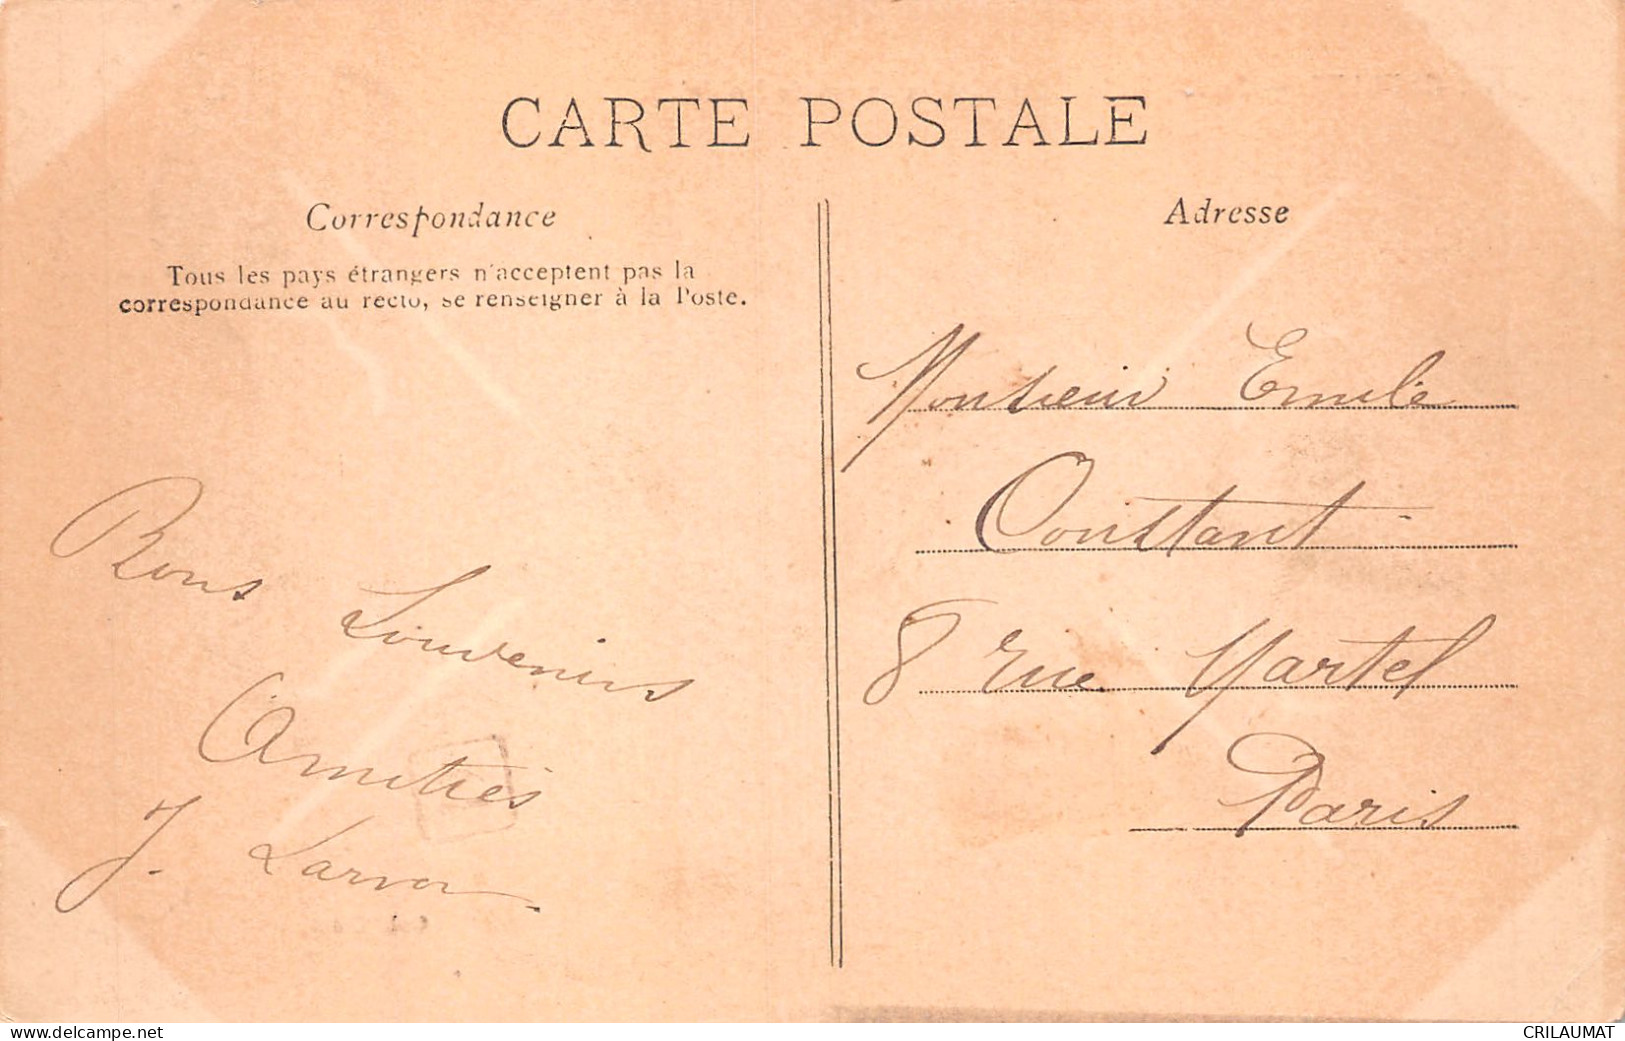 CARTE POSTALE
Correspondance
Tous les pays étrangers n'acceptent pas la
correspondance au recto, se renseigner à la Poste.
Bons
Souvenirs
Amitiés
J.
Adresse
Monsieur Emile
Constant
8 rue Martel
Paris
www.delcampe.net
CRILAUMAT